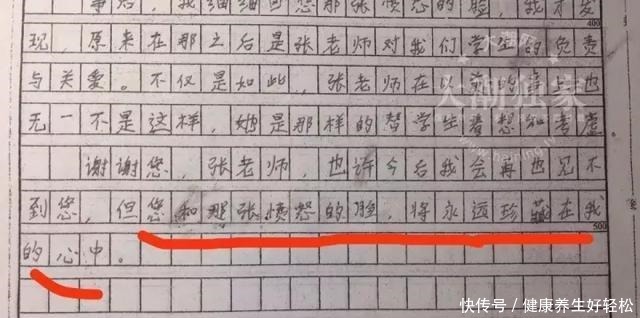 事后，我细细回想那张愤怒的脸，我才发
400
现，原来在那之后是张老师对我们学生的负责
与关爱。不仅是如此，张老师在以前的事上也
无一不是这样，她是那样的替学生着想和考虑
谢谢您，张老师，也许今后我会再也见不
到您，但您和那张愤怒的脸，将永远珍藏在我
500
的心中。
快传号／健康养生好轻松